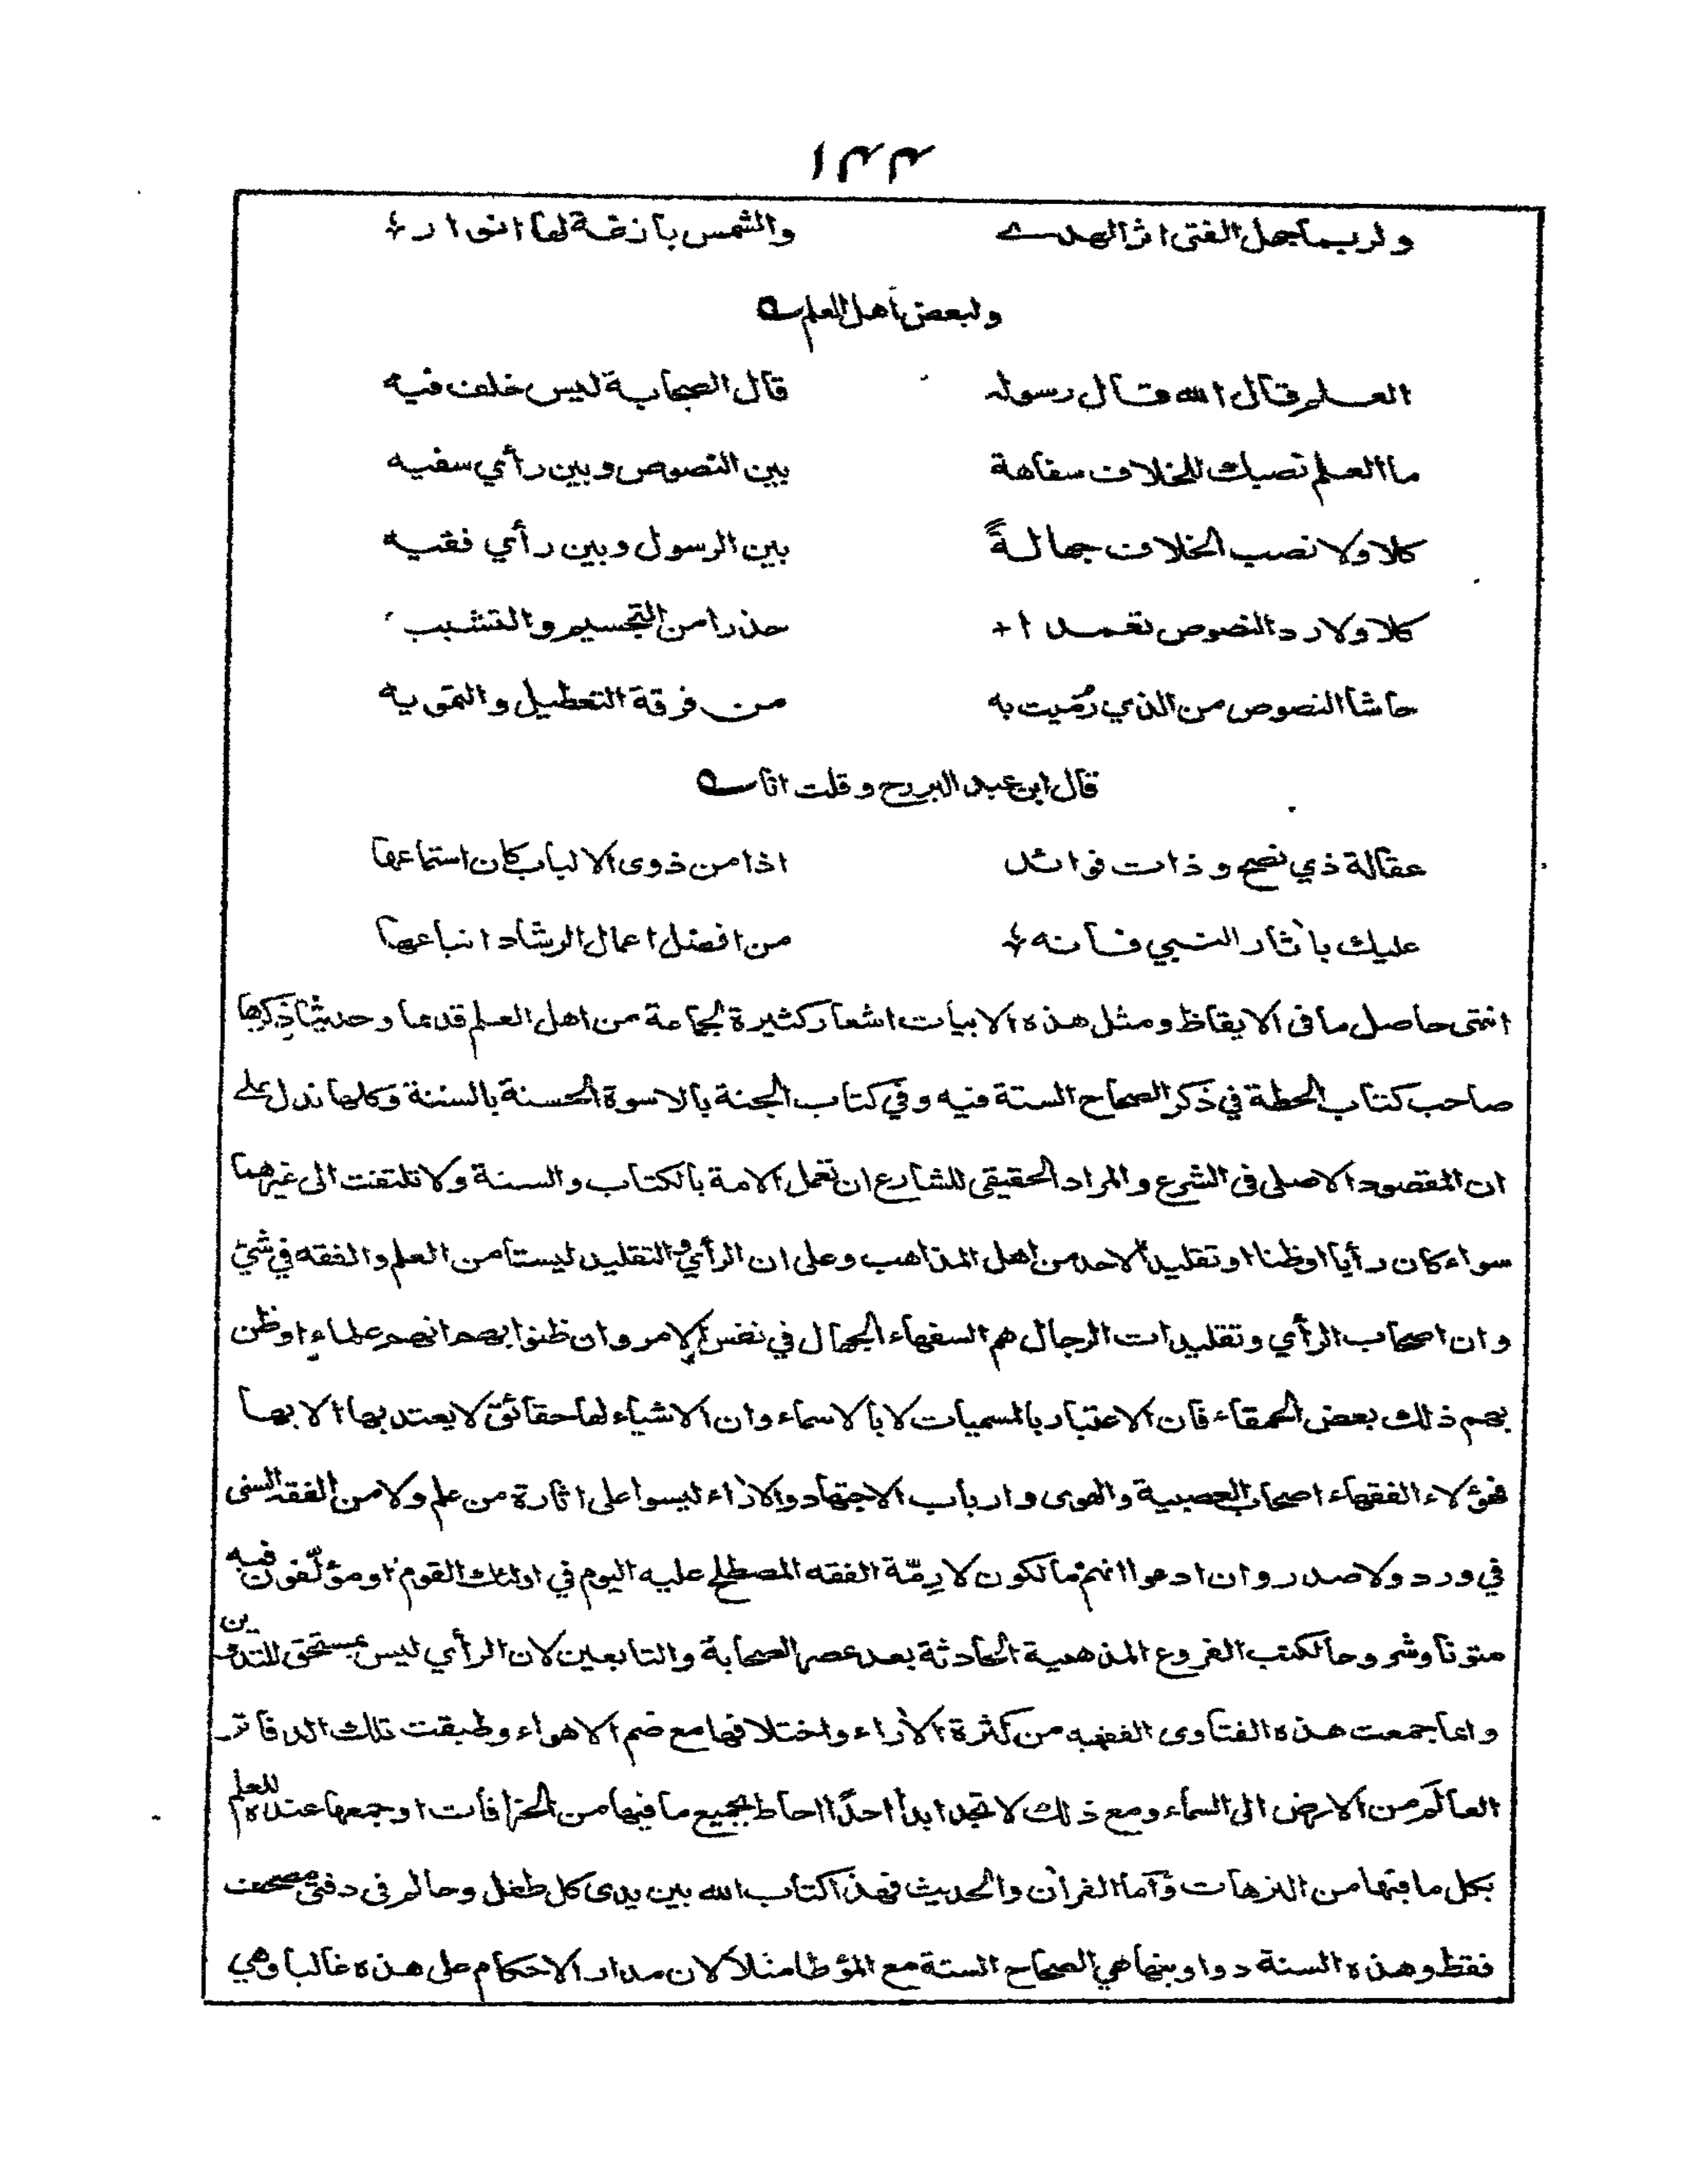 ١٢٢
ولربما جهل الفتى اثر الهدے والشمس بازغة لها انوار
ولبعض اهل العلم
العلم قال الله قال رسوله قال الصحابة ليس خلف فيه
ما العلم نصبك للخلاف سفاهة بين النصوص وبين رأي سفيه
كلا ولا نصب الخلاف جهالةً بين الرسول وبين رأي فقيه
كلا ولا رد النصوص تعمدا حذرا من التجسيم والتشبيه
حاشا النصوص من الذي رُميت به من فرقة التعطيل والتمويه
قال ابن عبد البر رح وقلت انا
مقالة ذي نصح وذات فوائد اذا من ذوى الالباب كان استماعها
عليك بآثار النبي فانه من افضل اعمال الرشاد اتباعها
انتهى حاصل ما فى الايقاظ ومثل هذه الابيات اشعار كثيرة لجماعة من اهل العلم قديما وحديثا ذكرها
صاحب كتاب الحطة في ذكر الصحاح الستة فيه وفي كتاب الجنة بالاسوة الحسنة بالسنة وكلها تدل على
ان المقصود الاصلى فى الشرع والمراد الحقيقى للشارع ان تعمل الامة بالكتاب والسنة ولا تلتفت الى غيرهما
سواء كان رأيا او ظنا او تقليدا لاحد من اهل المذاهب وعلى ان الرأي والتقليد ليستا من العلم والفقه في شئ
وان اصحاب الرأي وتقليدات الرجال هم السفهاء الجهال في نفس الامر وان ظنوا بهم انهم علماء او ظن
بهم ذلك بعض الحمقاء فان الاعتبار بالمسميات لا بالاسماء وان الاشياء لها حقائق لا يعتد بها الا بها
فهؤلاء الفقهاء اصحاب العصبية والهوى وارباب الاجتهاد والاراء ليسوا على اثارة من علم ولا من الفقه السنى
في ورد ولا صدر وان ادعوا انهم مالكون لا رِمّة الفقه المصطلح عليه اليوم في اولئك القوم او مؤلّفون فيه
متونا وشروحا لكتب الفروع المذهبية الحادثة بعد عصر الصحابة والتابعين لان الرأي ليس بمستحق للتدوين
وانما جمعت هذه الفتاوى الفقهيه من كثرة الأراء واختلافها مع ضم الاهواء وطبقت تلك الدفاتر
العالَم من الارض الى السماء ومع ذلك لا تجد ابدا احدًا احاط بجميع ما فيها من الخرافات او جمعها عنده للعلم
بكل ما فيها من الترهات واما القرآن والحديث فهذا كتاب الله بين يدى كل طفل وحالم فى دفتى مصحف
فقط وهذه السنة دواوينها هي الصحاح الستة مع المؤطا مثلا لان مدار الاحكام على هذه غالبا وهي